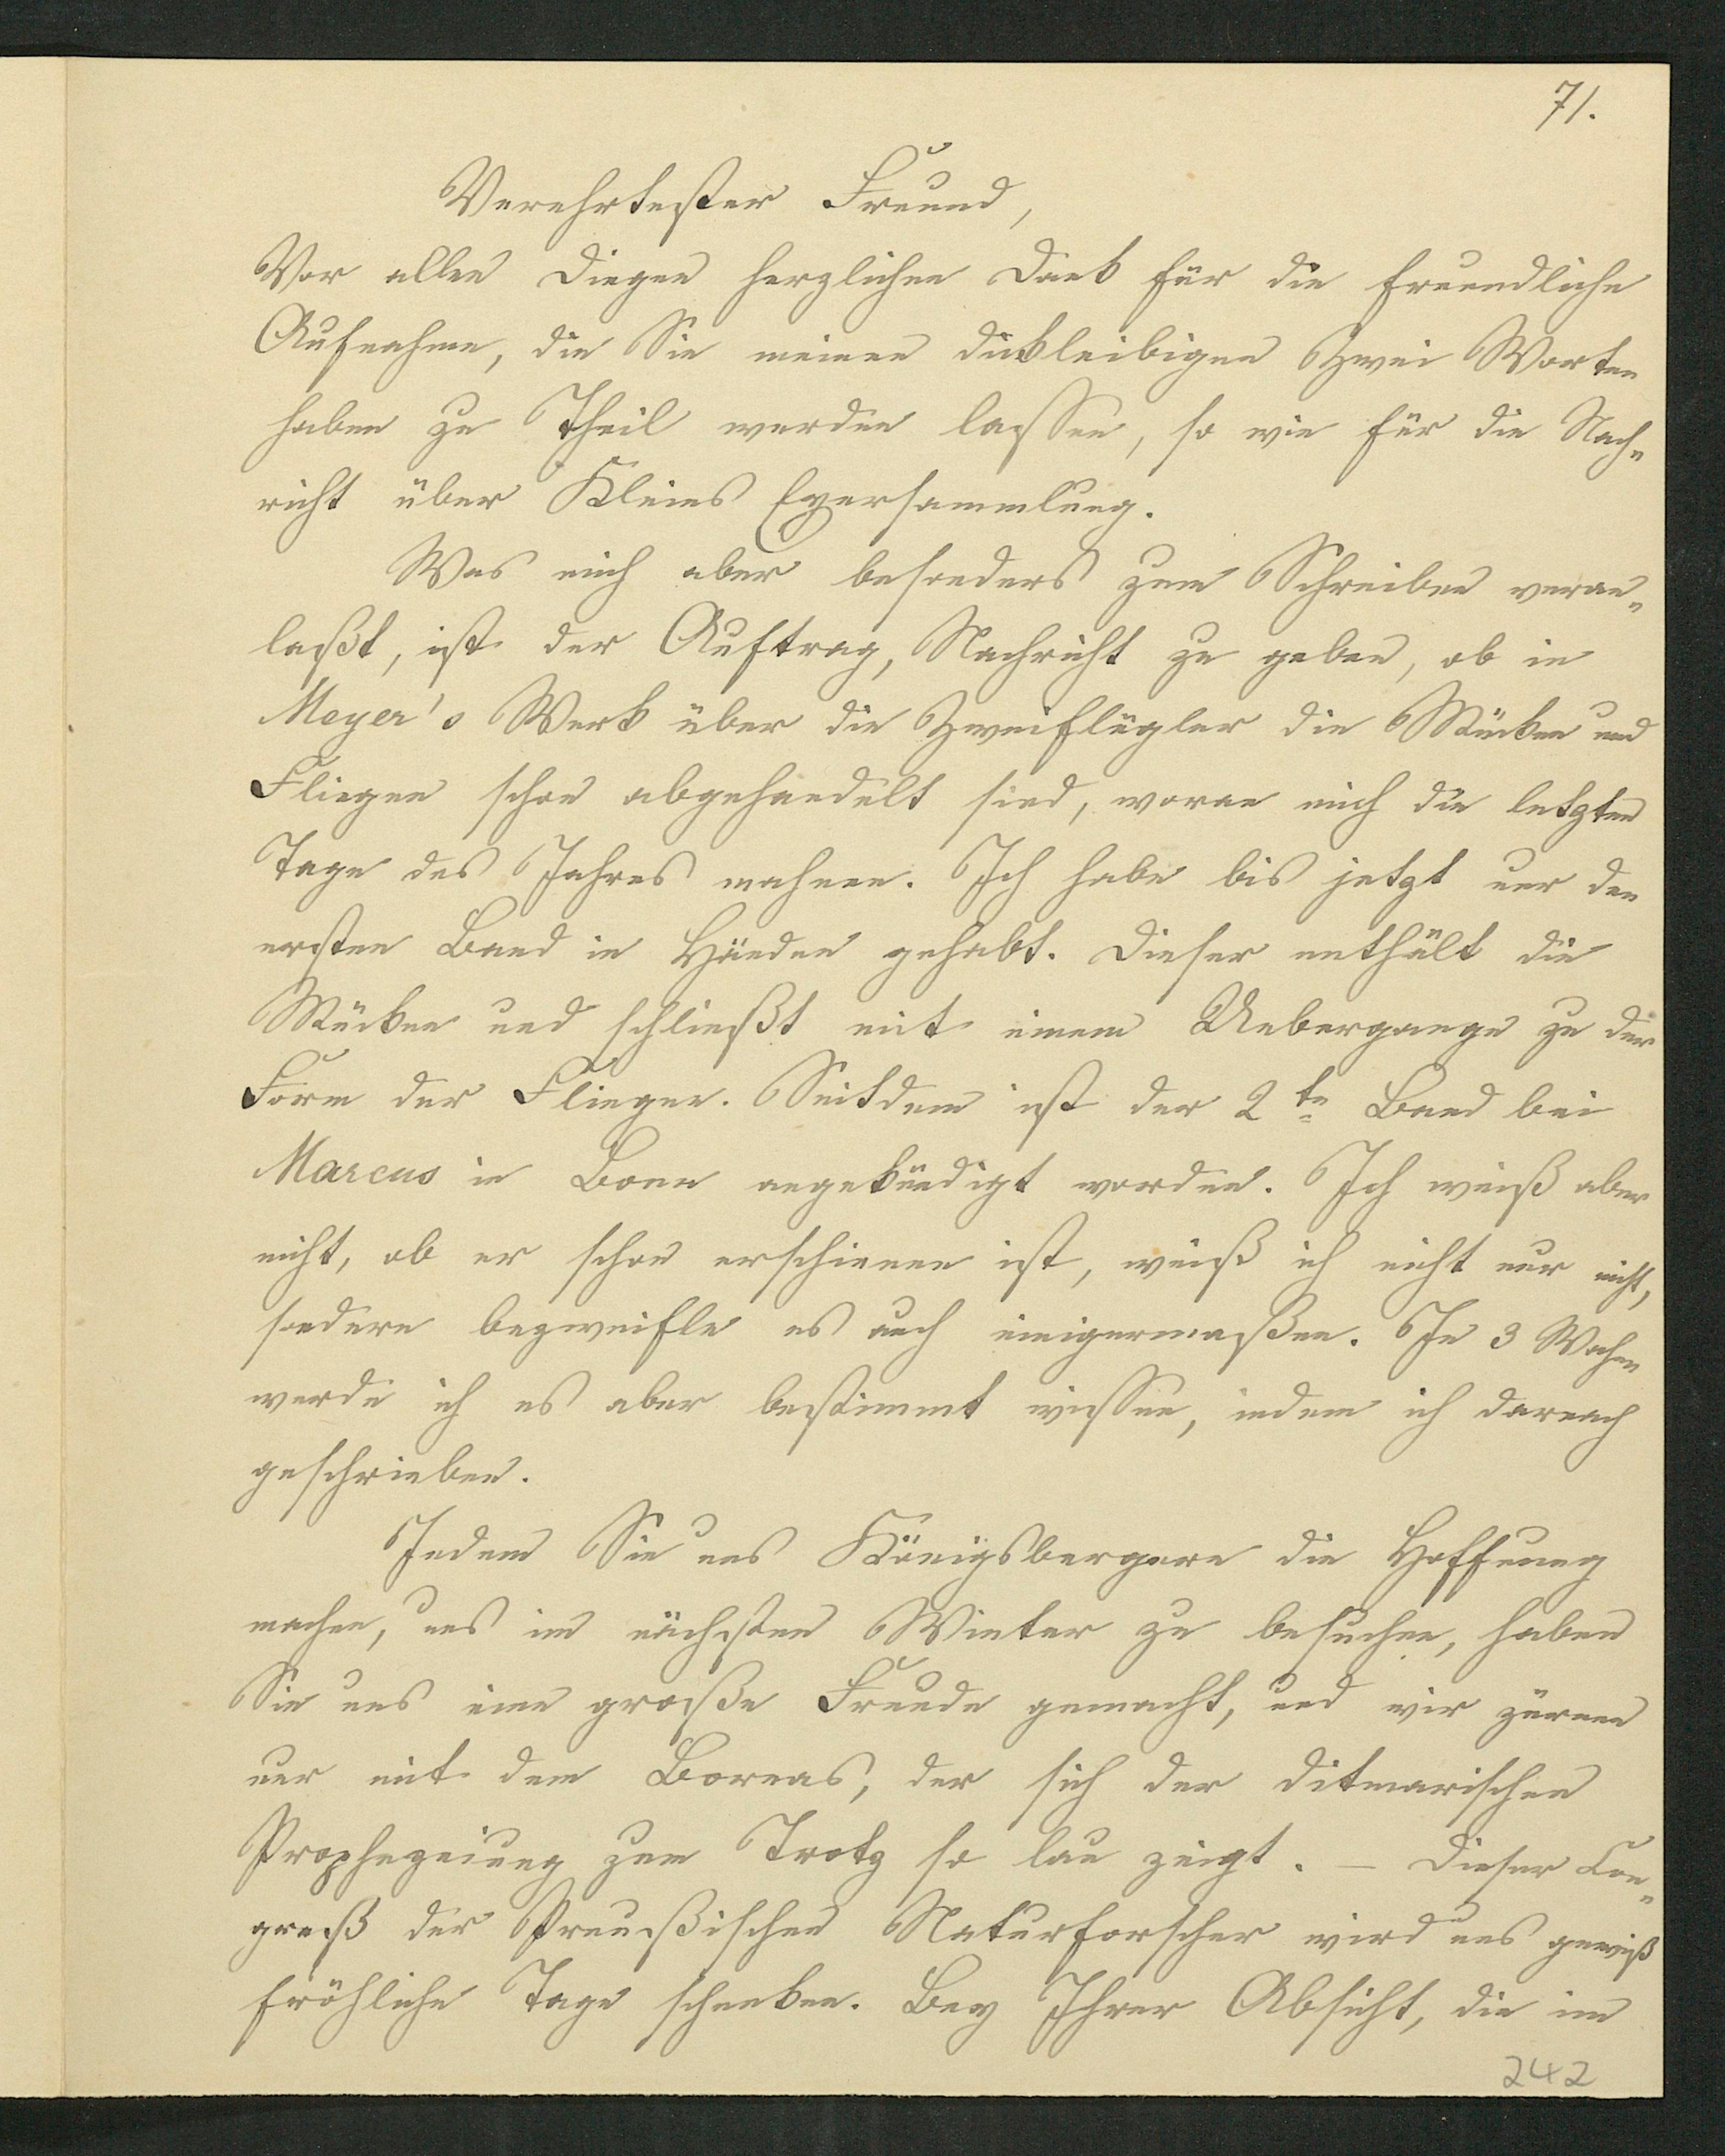 71.
Verehrtester Freund,
Vor allen Dingen herzlichen Dank für die freundliche
Aufnahme, die Sie meinen dickleibigen Zwei Worten
haben zu Theil werden lassen, so wie für die Nach-
richt über Kleins Eyersammlung.
Was mich aber besonders zum Schreiben veran-
laßt, ist der Auftrag, Nachricht zu geben, ob in
Meyer's Werk über die Zweiflügler die Mücken und
Fliegen schon abgehandelt sind, woran mich die letzten
Tage des Jahres mahnen. Ich habe bis jetzt nur den
ersten Band in Händen gehabt. Dieser enthält die
Mücken und schließt mit einem Uebergange zu der
Form der Fliegen. Seitdem ist der 2te Band bei
Marcus in Bonn angekündigt worden. Ich weiß aber
nicht, ob er schon erschienen ist, weiß ich nicht nur nicht,
sondern bezweifle es auch einigermaßen. In 3 Wochen
werde ich es aber bestimmt wissen, indem ich darnach
geschrieben.
Indem Sie uns Königsbergern die Hoffnung
machen, uns im nächsten Winter zu besuchen, haben
Sie uns eine große Freude gemacht, und wir zürnen
nur mit dem Boreas, der sich der ditmarischen
Prophezeiung zum Trotz so lau zeigt. — Dieser Con-
greß der Preußischen Naturforscher wird uns gewiß
fröhliche Tage schenken. Bey Ihrer Absicht, die im
242